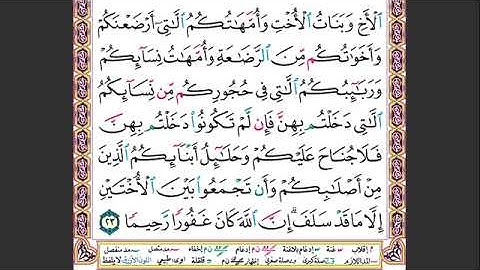 ٱلْأَخِ وَبَنَاتُ ٱلْأُخْتِ وَأُمَّهَٰتُكُمُ ٱلَّٰتِىٓ أَرْضَعْنَكُمْ
وَأَخَوَٰتُكُم مِّنَ ٱلرَّضَٰعَةِ وَأُمَّهَٰتُ نِسَآئِكُمْ
وَرَبَٰٓئِبُكُمُ ٱلَّٰتِى فِى حُجُورِكُم مِّن نِّسَآئِكُمُ
ٱلَّٰتِى دَخَلْتُم بِهِنَّ فَإِن لَّمْ تَكُونُوا۟ دَخَلْتُم بِهِنَّ
فَلَا جُنَاحَ عَلَيْكُمْ وَحَلَٰٓئِلُ أَبْنَآئِكُمُ ٱلَّذِينَ
مِنْ أَصْلَٰبِكُمْ وَأَن تَجْمَعُوا۟ بَيْنَ ٱلْأُخْتَيْنِ
إِلَّا مَا قَدْ سَلَفَ ۗ إِنَّ ٱللَّهَ كَانَ غَفُورًا رَّحِيمًا ٢٣